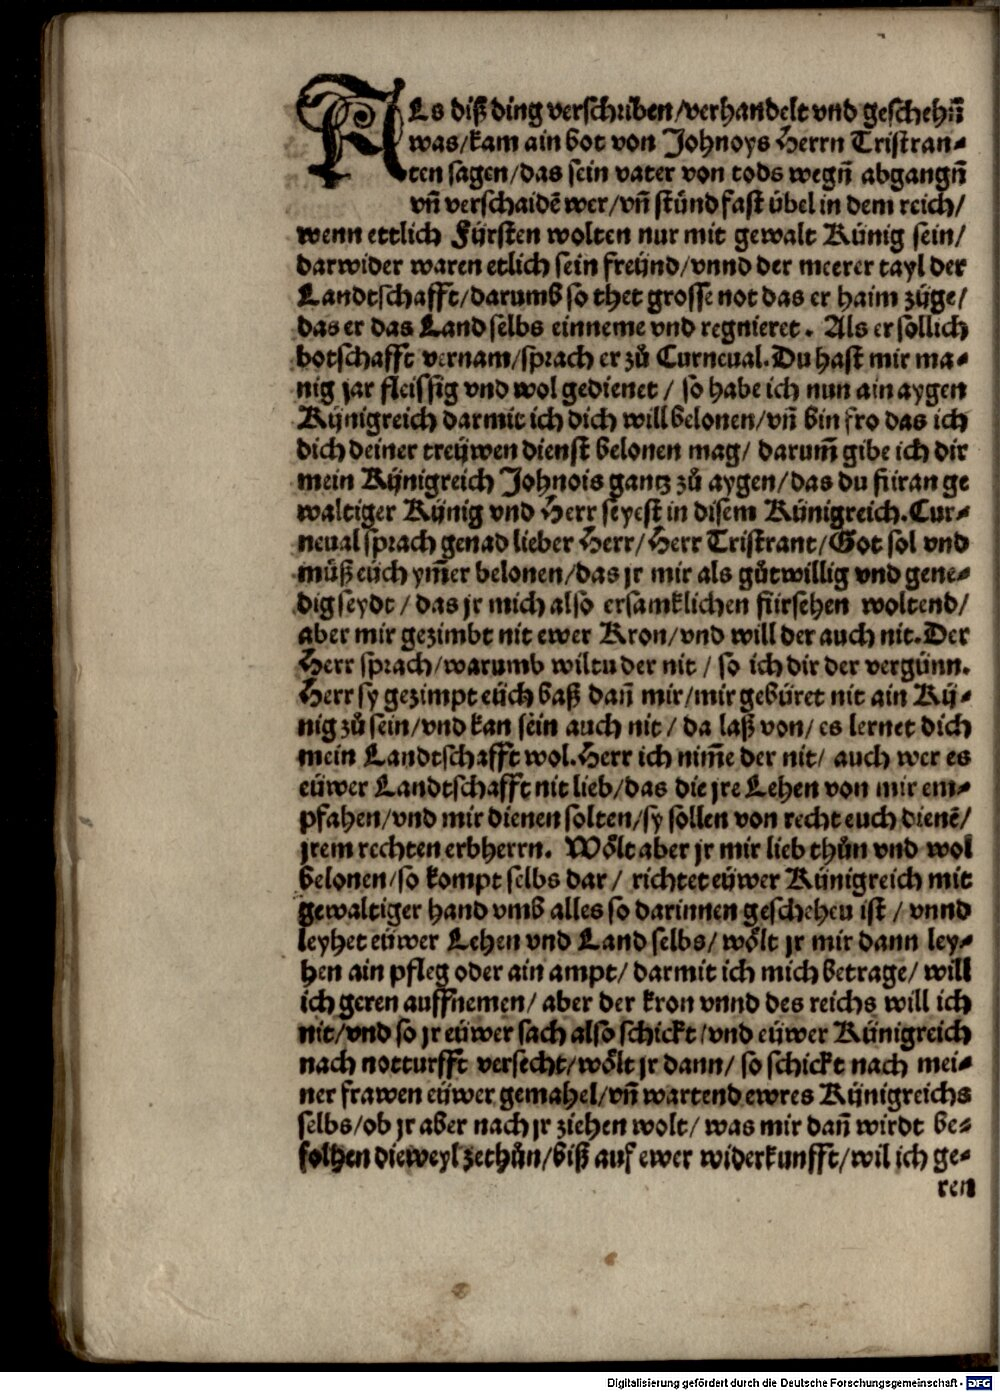 ALs diß ding verschriben/verhandelt vnd geschehñ
was/kam ain bot von Johnoys Herrn Tristran⸗
ten sagen/das sein vater von tods wegñ abgangñ
vñ verschaidē wer/vñ stünd fast übel in dem reich/
wenn ettlich Fürsten wolten nur mit gewalt Künig sein/
darwider waren etlich sein freünd/vnnd der meerer tayl der
Landtschafft/darumb so thet grosse not das er haim züge/
das er das Land selbs einneme vnd regnieret. Als er söllich
botschafft vernam/sprach er zů Curneual. Du hast mir ma⸗
nig jar fleissig vnd wol gedienet / so habe ich nun ain aygen
Künigreich darmit ich dich will belonen/vñ bin fro das ich
dich deiner treüwen dienst belonen mag/ darum̃ gibe ich dir
mein Künigreich Johnois gantz zů aygen/das du füran ge
waltiger Künig vnd Herr seyest in disem Künigreich. Cur⸗
neual sprach genad lieber Herr/Herr Tristrant/Got sol vnd
můß eüch ym̃er belonen/das jr mir als gůtwillig vnd gene⸗
dig seydt / das jr mich also ersamklichen fürsehen woltend/
aber mir gezimbt nit ewer Kron/vnd will der auch nit. Der
Herr sprach/warumb wiltu der nit / so ich dir der vergünn.
Herr sy gezimpt eüch baß dañ mir/mir gebüret nit ain Kü⸗
nig zů sein/vnd kan sein auch nit / da laß von/ es lernet dich
mein Landtschafft wol. Herr ich nim̃e der nit/ auch wer es
eüwer Landtschafft nit lieb/das die jre Lehen von mir em⸗
pfahen/vnd mir dienen solten/sy sollen von recht euch dienē/
jrem rechten erbherrn. Wölt aber jr mir lieb thůn vnd wol
belonen/so kompt selbs dar/ richtet eüwer Künigreich mit
gewaltiger hand vmb alles so darinnen geschehen ist / vnnd
leyhet eüwer Lehen vnd Land selbs/ wölt jr mir dann ley⸗
hen ain pfleg oder ain ampt/ darmit ich mich betrage/ will
ich geren auffnemen/ aber der kron vnnd des reichs will ich
nit/vnd so jr eüwer sach also schickt/vnd eüwer Künigreich
nach notturfft versecht/wölt jr dann/ so schickt nach mei⸗
ner frawen eüwer gemahel/vñ wartend ewres Künigreichs
selbs/ob jr aber nach jr ziehen wolt/ was mir dañ wirdt be⸗
folhen dieweyl zethůn/biß auf ewer widerkunfft/wil ich ge⸗
ren
Digitalisierung gefördert durch die Deutsche Forschungsgemeinschaft - DFG